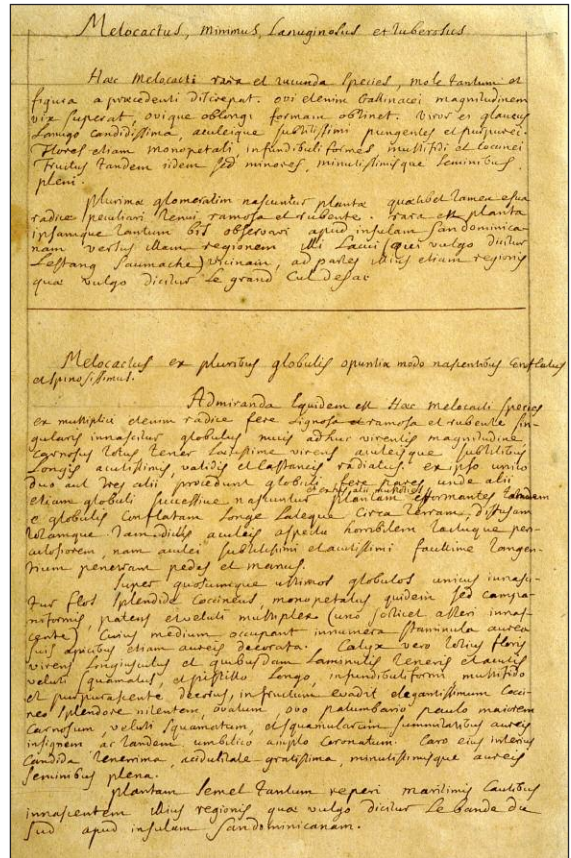 Melocactus, minimus, Lanuginosus et tuberosus.
Hæc Melocacti rara et iucunda species, mole tantum et
figura a præcedenti discrepat. ovi etenim Gallinacei magnitudinem
vix superat, ovique oblongi formam obtinet. Viror ei glaucus
Lanugo candidissima, aculeique subtilissimi pungentes et purpurei.
Flores etiam monopetali infundibuliformes multifidi et coccinei
Fructus tandem iidem sed minores, minutissimisque seminibus
pleni.
Plurimæ glomeratim nascuntur plantæ quælibet tamen e sua
radice peculiari tenui ramosa et rubente. rara est planta
ipsamque tantum bis observavi apud insulam Sandominica-
nam versus illam regionem Lacui (qui vulgo dicitur
Lestang Saumache) vicinam, ad partes illius etiam regionis
quæ vulgo dicitur Le grand Culdesac
Melocactus ex pluribus globulis opuntiæ modo nascentibus conflatus
et spinosissimus.
Admiranda equidem est Hæc Melocacti species
ex multiplici etenim radice fere Lignosa ramosa et rubente sin-
gularis innascitur globulus nucis adhuc virentis magnitudine
carnosus totus tener Lætissime virens aculeisque subtilibus
Longis acutissimis, validis et radiatus. ex ipso unico
duo aut tres alii procedunt globuli fere pares unde alii
et ex his alii multoties
etiam globuli successive nascuntur plantam efformantes
e globulis conflatam Longe Lateque circa terram, diffusam
totamque aculeis aspectu horribilem tactuque peri-
culosiorem, nam aculei subtilissimi et acutissimi facillime tangen-
tium penetrant pedes et manus.
Super quoscumque ultimos globulos unicus innasci-
tur flos splendide coccineus, monopetalus quidem sed campa-
niformis, patens et veluti multiplex (uno scilicet alteri innas-
cente) Cuius medium occupant innumera staminula aurea
suis apicibus etiam aureis decorata. Calyx vero totius floris
virens Longiusculus et quibusdam Lamonulis teneris et acutis
veluti squamatus, et pistillo Longo, infundibuliformi, multifido
et purpurascente decorus, in fructum evadit elegantissimum cocci-
neo splendore nitentem, ovatum, ovo palumbario paulo maiorem
carnosum, veluti squamatum, et squamularum summitatibus aureis
insignem ac tandem, umbilico amplo coronatum. Caro eius interius
candida tenerrima, aciditate gratissima, minutissimisque aureis
seminibus plena.
plantam semel tantum reperi maritimis Cautibus
innascentem illius regionis quæ vulgo dicitur Le bande du
Sud apud insulam Sandominicanam.